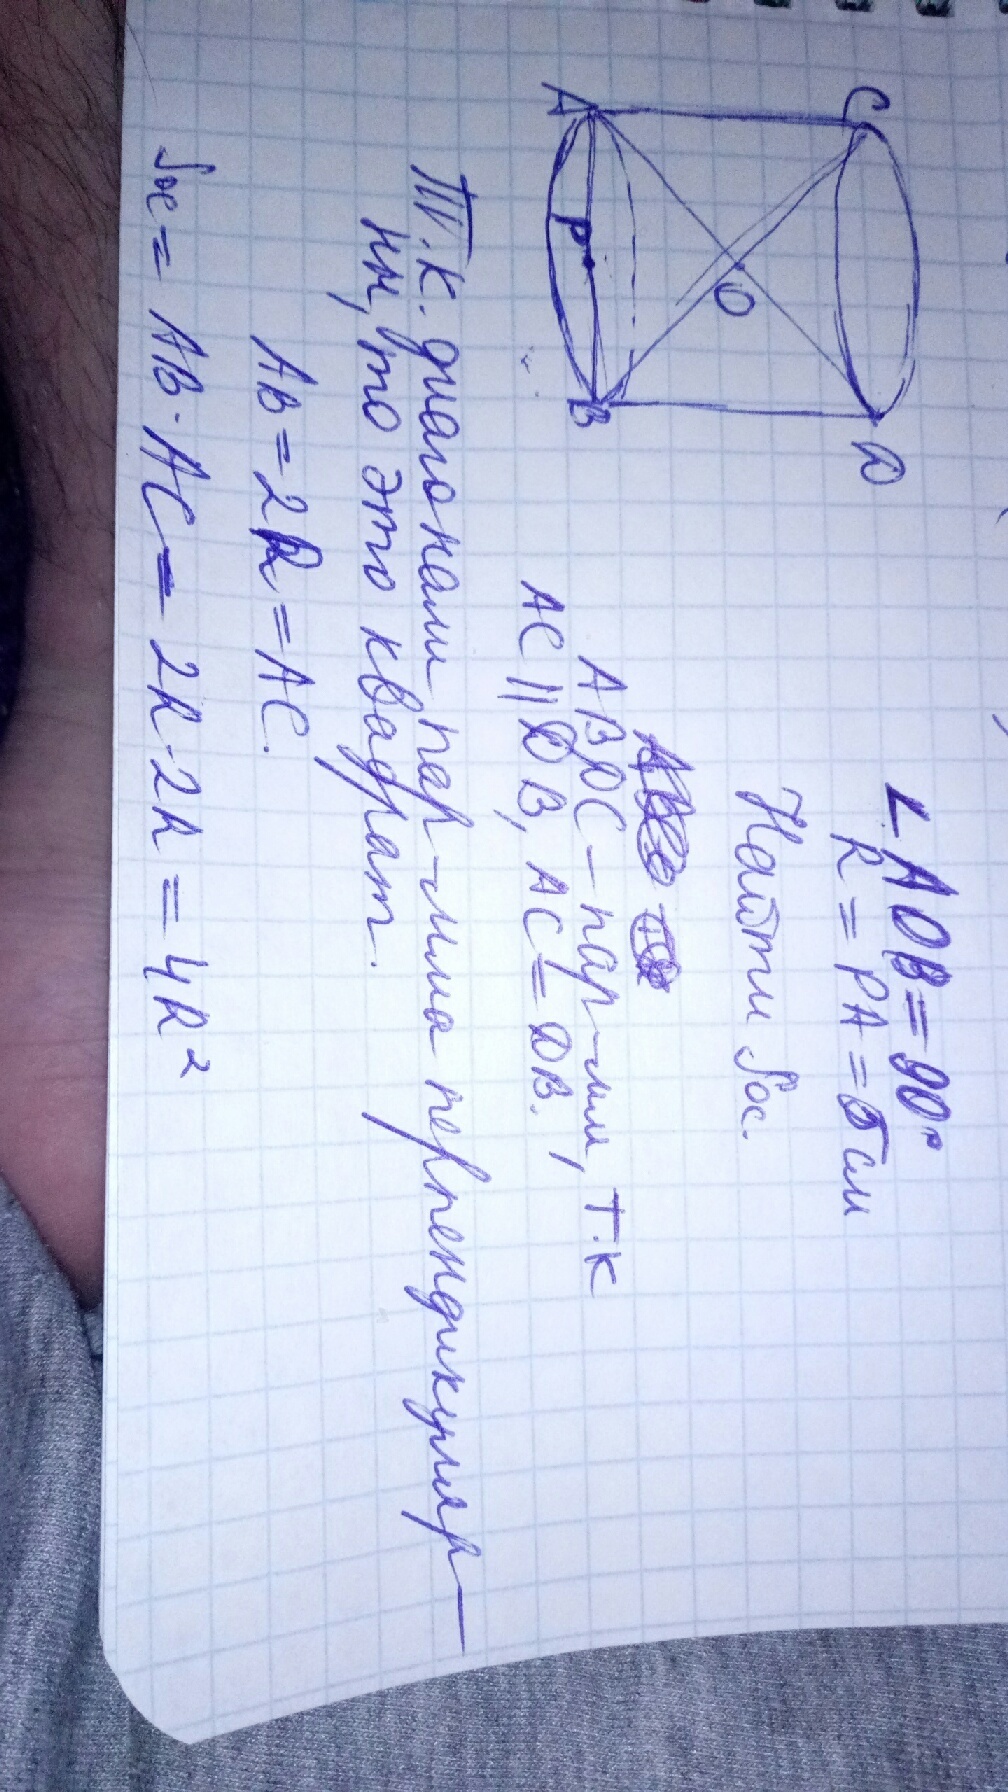 A
C
P
O
B
D
∠AOB=90°
R=PA=5см
Найти Sос.
ABDC-пар-мм, т.к
AC||DB, AC=DB.
Т.к. диагонали пар-мма перпендикуляр-
ны, то это квадрат.
AB=2R=AC.
Sос=AB·AC=2R·2R=4R²